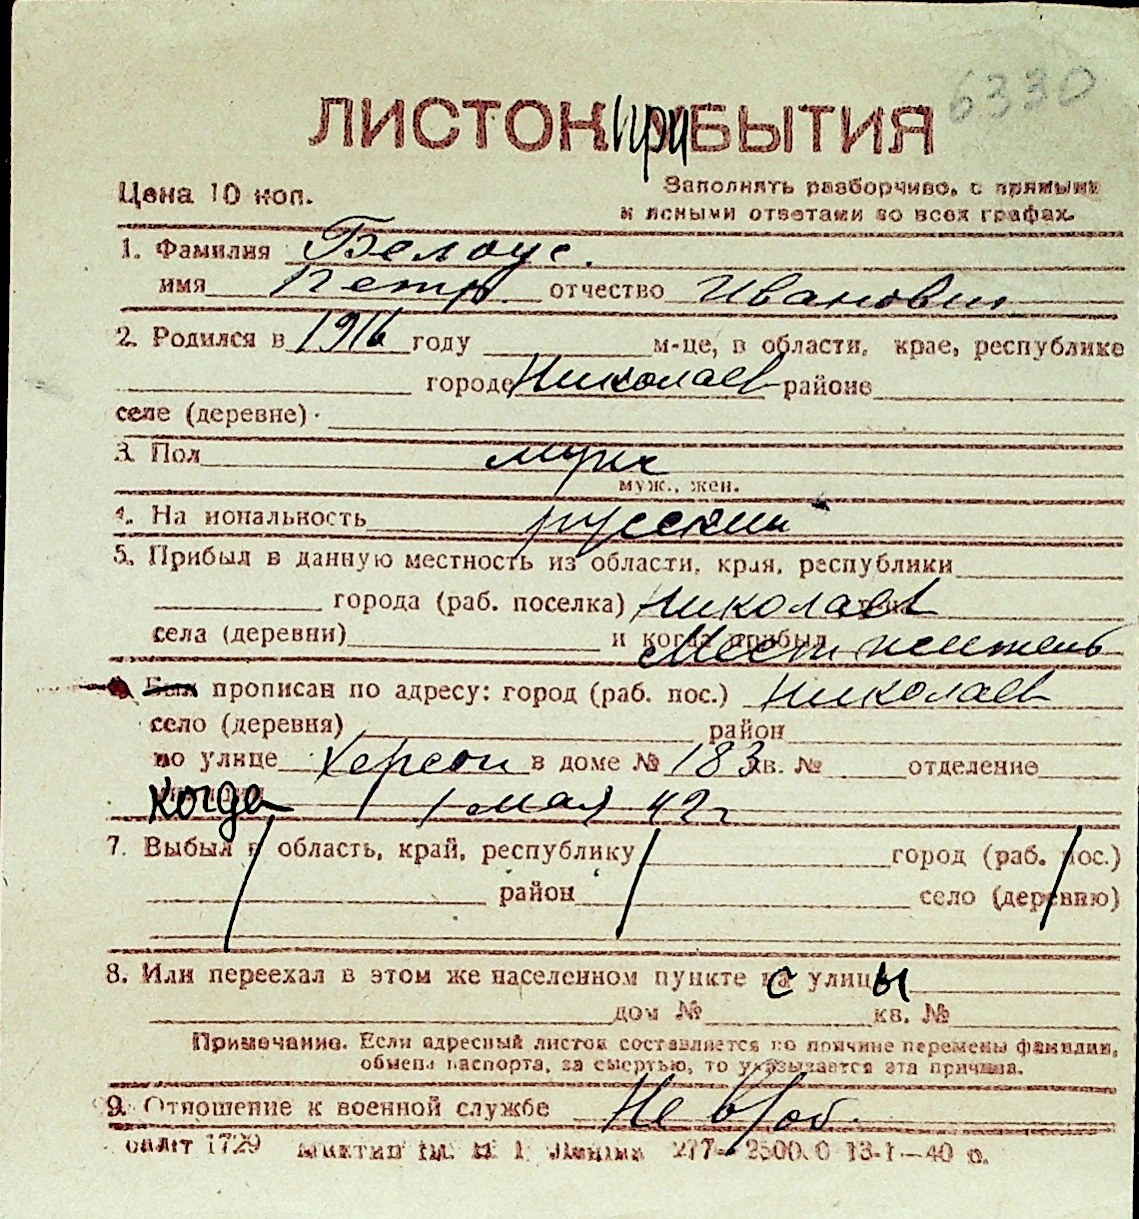 6330
ЛИСТОК ПРИБЫТИЯ
Цена 10 коп.
Заполнять разборчиво, с прямыми
и ясными ответами во всех графах.
1. Фамилия Белоус.
имя Петр отчество Иванович
2. Родился в 1916 году м-це, в области, крае, республике
городе Николаев районе
селе (деревне)
3. Пол муж
муж., жен.
4. На иональность русский
5. Прибыл в данную местность из области, края, республики
города (раб. поселка) Николаев
села (деревни) и когда прибыл Мест житель
Был прописан по адресу: город (раб. пос.) Николаев
село (деревня) район
по улице Херсон в доме № 183 кв. № отделение
когда 1 мая 42 г
7. Выбыл в область, край, республику город (раб. пос.)
район село (деревню)
8. Или переехал в этом же населенном пункте с улицы
дом № кв. №
Примечание. Если адресный листок составляется по причине перемены фамилии,
обмена паспорта, за смертью, то указывается эта причина.
9. Отношение к военной службе Не в/об.
1729 Ленина 277—2500.0 13-1—40 р.